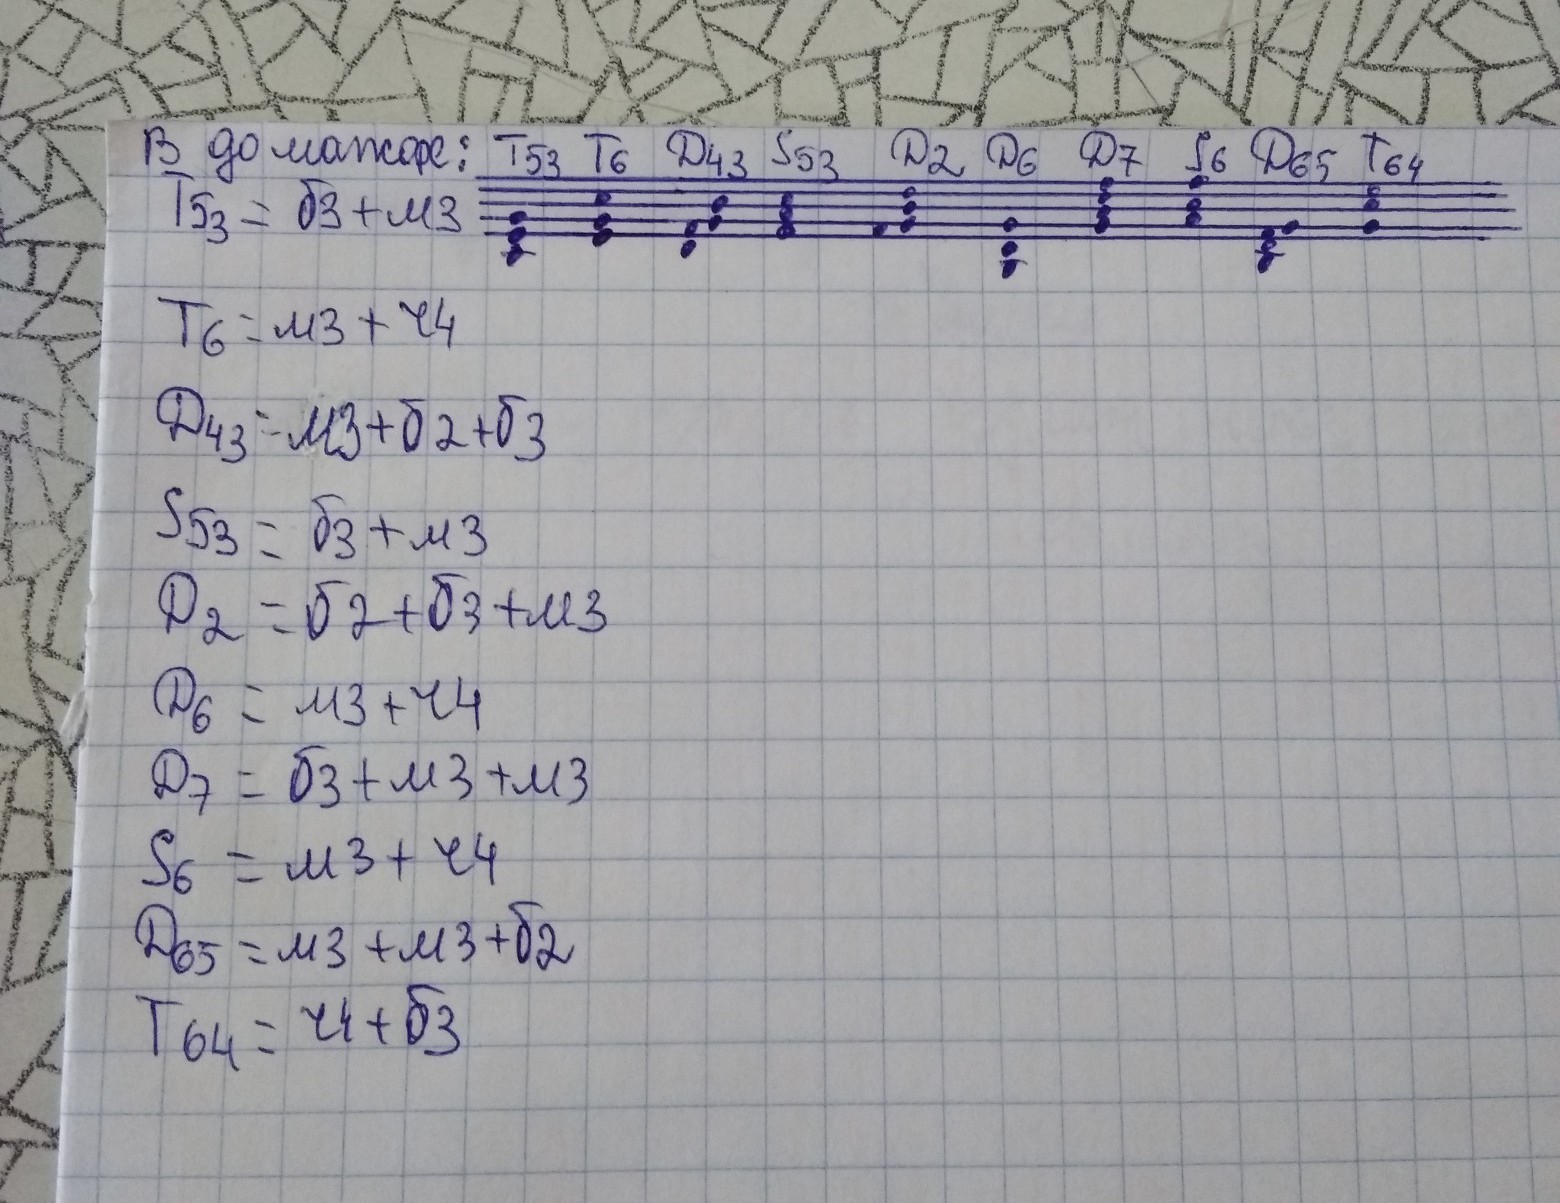 В до мажоре: T53 T6 D43 S53 D2 D6 D7 S6 D65 T64
T53 = б3 + м3
T6 = м3 + ч4
D43 = м3 + б2 + б3
S53 = б3 + м3
D2 = б2 + б3 + м3
D6 = м3 + ч4
D7 = б3 + м3 + м3
S6 = м3 + ч4
D65 = м3 + м3 + б2
T64 = ч4 + б3